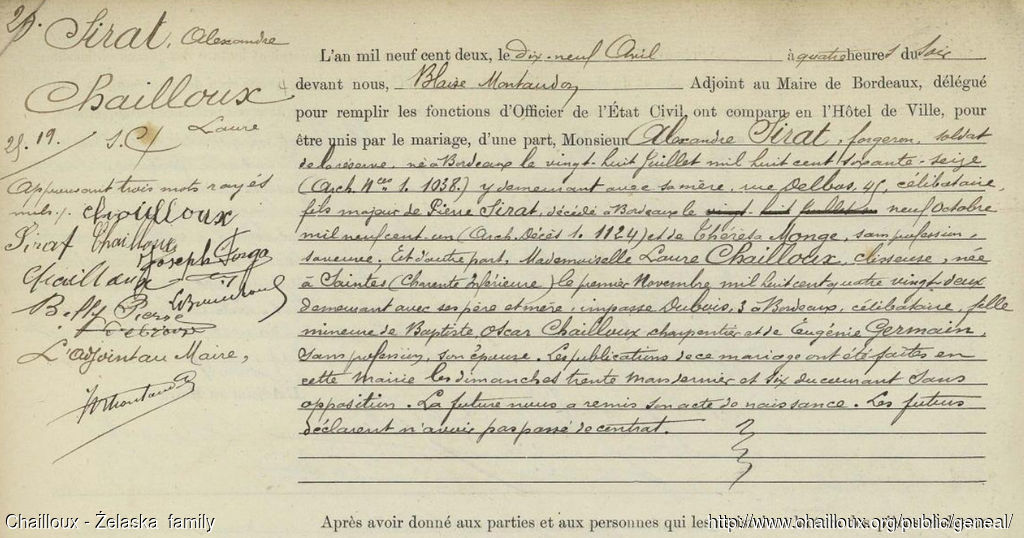 Sirat, Alexandre
Chailloux
Laure
25. 19. S.C/
Approuvant trois mots rayés
nuls /. Chailloux
Sirat Chailloux
Chailloux Joseph Forga
Betty Pierre
L'adjoint au Maire,
L'an mil neuf cent deux, le dix-neuf Avril à quatre heures du Soir
devant nous, Blaise Montaudon Adjoint au Maire de Bordeaux, délégué
pour remplir les fonctions d'Officier de l'État Civil, ont comparu en l'Hôtel de Ville, pour
être unis par le mariage, d'une part, Monsieur Alexandre Sirat, forgeron, soldat
de la réserve, né à Bordeaux le vingt-huit Juillet mil huit cent soixante-seize
(Arch. Nces 1. 1038.) y demeurant avec sa mère, rue Delbos, 45, célibataire,
fils majeur de Pierre Sirat, décédé à Bordeaux le vingt-huit Juillet neuf Octobre
mil neuf cent-un (Arch. Décès 1. 1124) et de Thérésa Monge, sans profession
sa veuve, Et d'autre part, Mademoiselle Laure Chailloux, née
à Saintes (Charente Inférieure) le premier Novembre mil huit cent quatre vingt-deux
demeurant avec ses père et mère, impasse Dubois, 3 à Bordeaux, célibataire, fille
mineure de Baptiste, Oscar Chailloux charpentier et de Eugénie Germain,
sans profession, son épouse. Les publications de ce mariage ont été faites en
cette Mairie les dimanches trente Mars dernier et six du courant sans
opposition. La future nous a remis son acte de naissance. Les futurs
déclarent n'avoir pas passé de contrat.
Après avoir donné aux parties et aux personnes qui les
Chailloux - Żelaska family
http://www.chailloux.org/public/geneal/